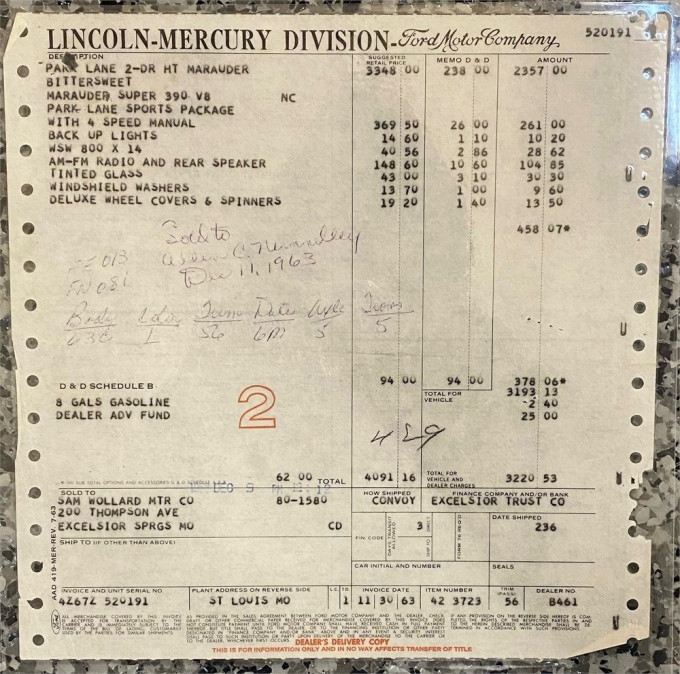 LINCOLN-MERCURY DIVISION-Ford Motor Company 520191
DESCRIPTION SUGGESTED RETAIL PRICE MEMO D & D AMOUNT
PARK LANE 2-DR HT MARAUDER 3348 00 238 00 2357 00
BITTERSWEET
MARAUDER SUPER 390 V8 NC
PARK LANE SPORTS PACKAGE
WITH 4 SPEED MANUAL 369 50 26 00 261 00
BACK UP LIGHTS 14 60 1 10 10 20
WSW 800 X 14 40 56 2 86 28 62
AM-FM RADIO AND REAR SPEAKER 148 60 10 60 104 85
TINTED GLASS 43 00 3 10 30 30
WINDSHIELD WASHERS 13 70 1 00 9 60
DELUXE WHEEL COVERS & SPINNERS 19 20 1 40 13 50
458 07*
Sold to
Dec 11, 1963
FN 081
Body Color Trim Date Axle Trans
63C 1 56 6M 5 5
94 00 94 00 378 06*
D & D SCHEDULE B TOTAL FOR VEHICLE 3193 13
8 GALS GASOLINE 2 40
DEALER ADV FUND 25 00
2
429
62 00 TOTAL 4091 16 TOTAL FOR VEHICLE AND DEALER CHARGES 3220 53
DEC 9
SOLD TO HOW SHIPPED FINANCE COMPANY AND/OR BANK
SAM WOLLARD MTR CO 80-1580 CONVOY EXCELSIOR TRUST CO
200 THOMPSON AVE
EXCELSIOR SPRGS MO CD
FIN. CODE DAYS TRANSIT ALLOWED 3 SHIP TO DIRECT FORM TO REQ'D DATE SHIPPED
236
SHIP TO (IF OTHER THAN ABOVE)
CAR INITIAL AND NUMBER SEALS
AAD 419-MER-REV. 7-63
INVOICE AND UNIT SERIAL NO. PLANT ADDRESS ON REVERSE SIDE INVOICE DATE ITEM NUMBER TRIM DEALER NO
4Z67Z 520191 ST LOUIS MO 1 11 30 63 42 3723 56 8461
DEALER'S DELIVERY COPY
THIS IS FOR INFORMATION ONLY AND IN NO WAY AFFECTS TRANSFER OF TITLE